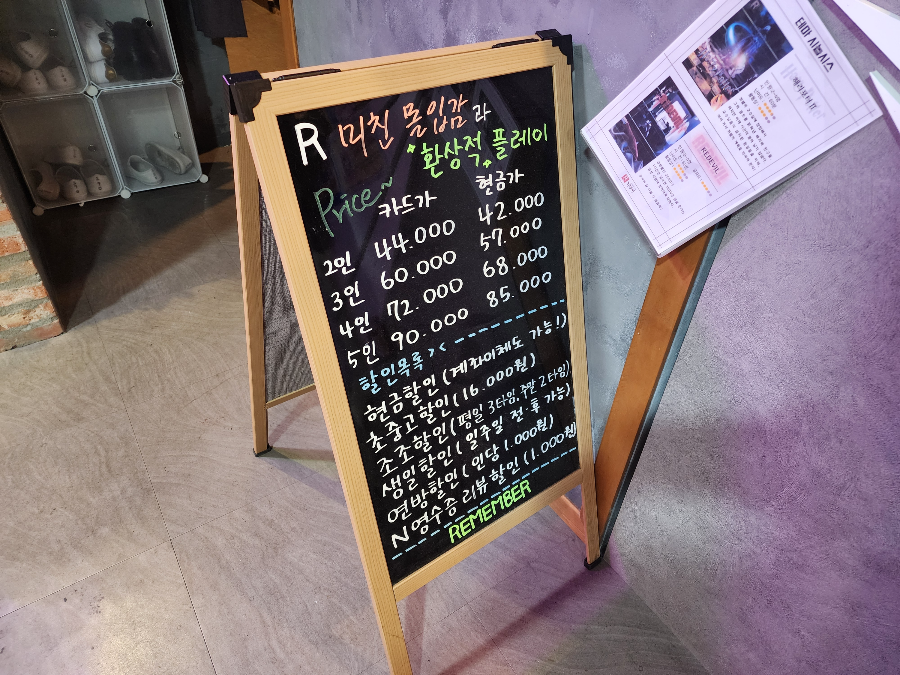 R 미친 몰입감 과
환상적 플레이
Price~
카드가 현금가
2인 44.000 42.000
3인 60.000 57.000
4인 72.000 68.000
5인 90.000 85.000
할인목록 > <
현금할인 (계좌이체도 가능!)
초중고할인 (16.000원)
조조할인 (평일 3타임, 주말 2타임)
생일할인 (일주일 전·후 가능)
연방할인 (인당 1.000원)
N영수증 리뷰할인 (1.000원)
REMEMBER
테마 시놉시스
REDEVIL